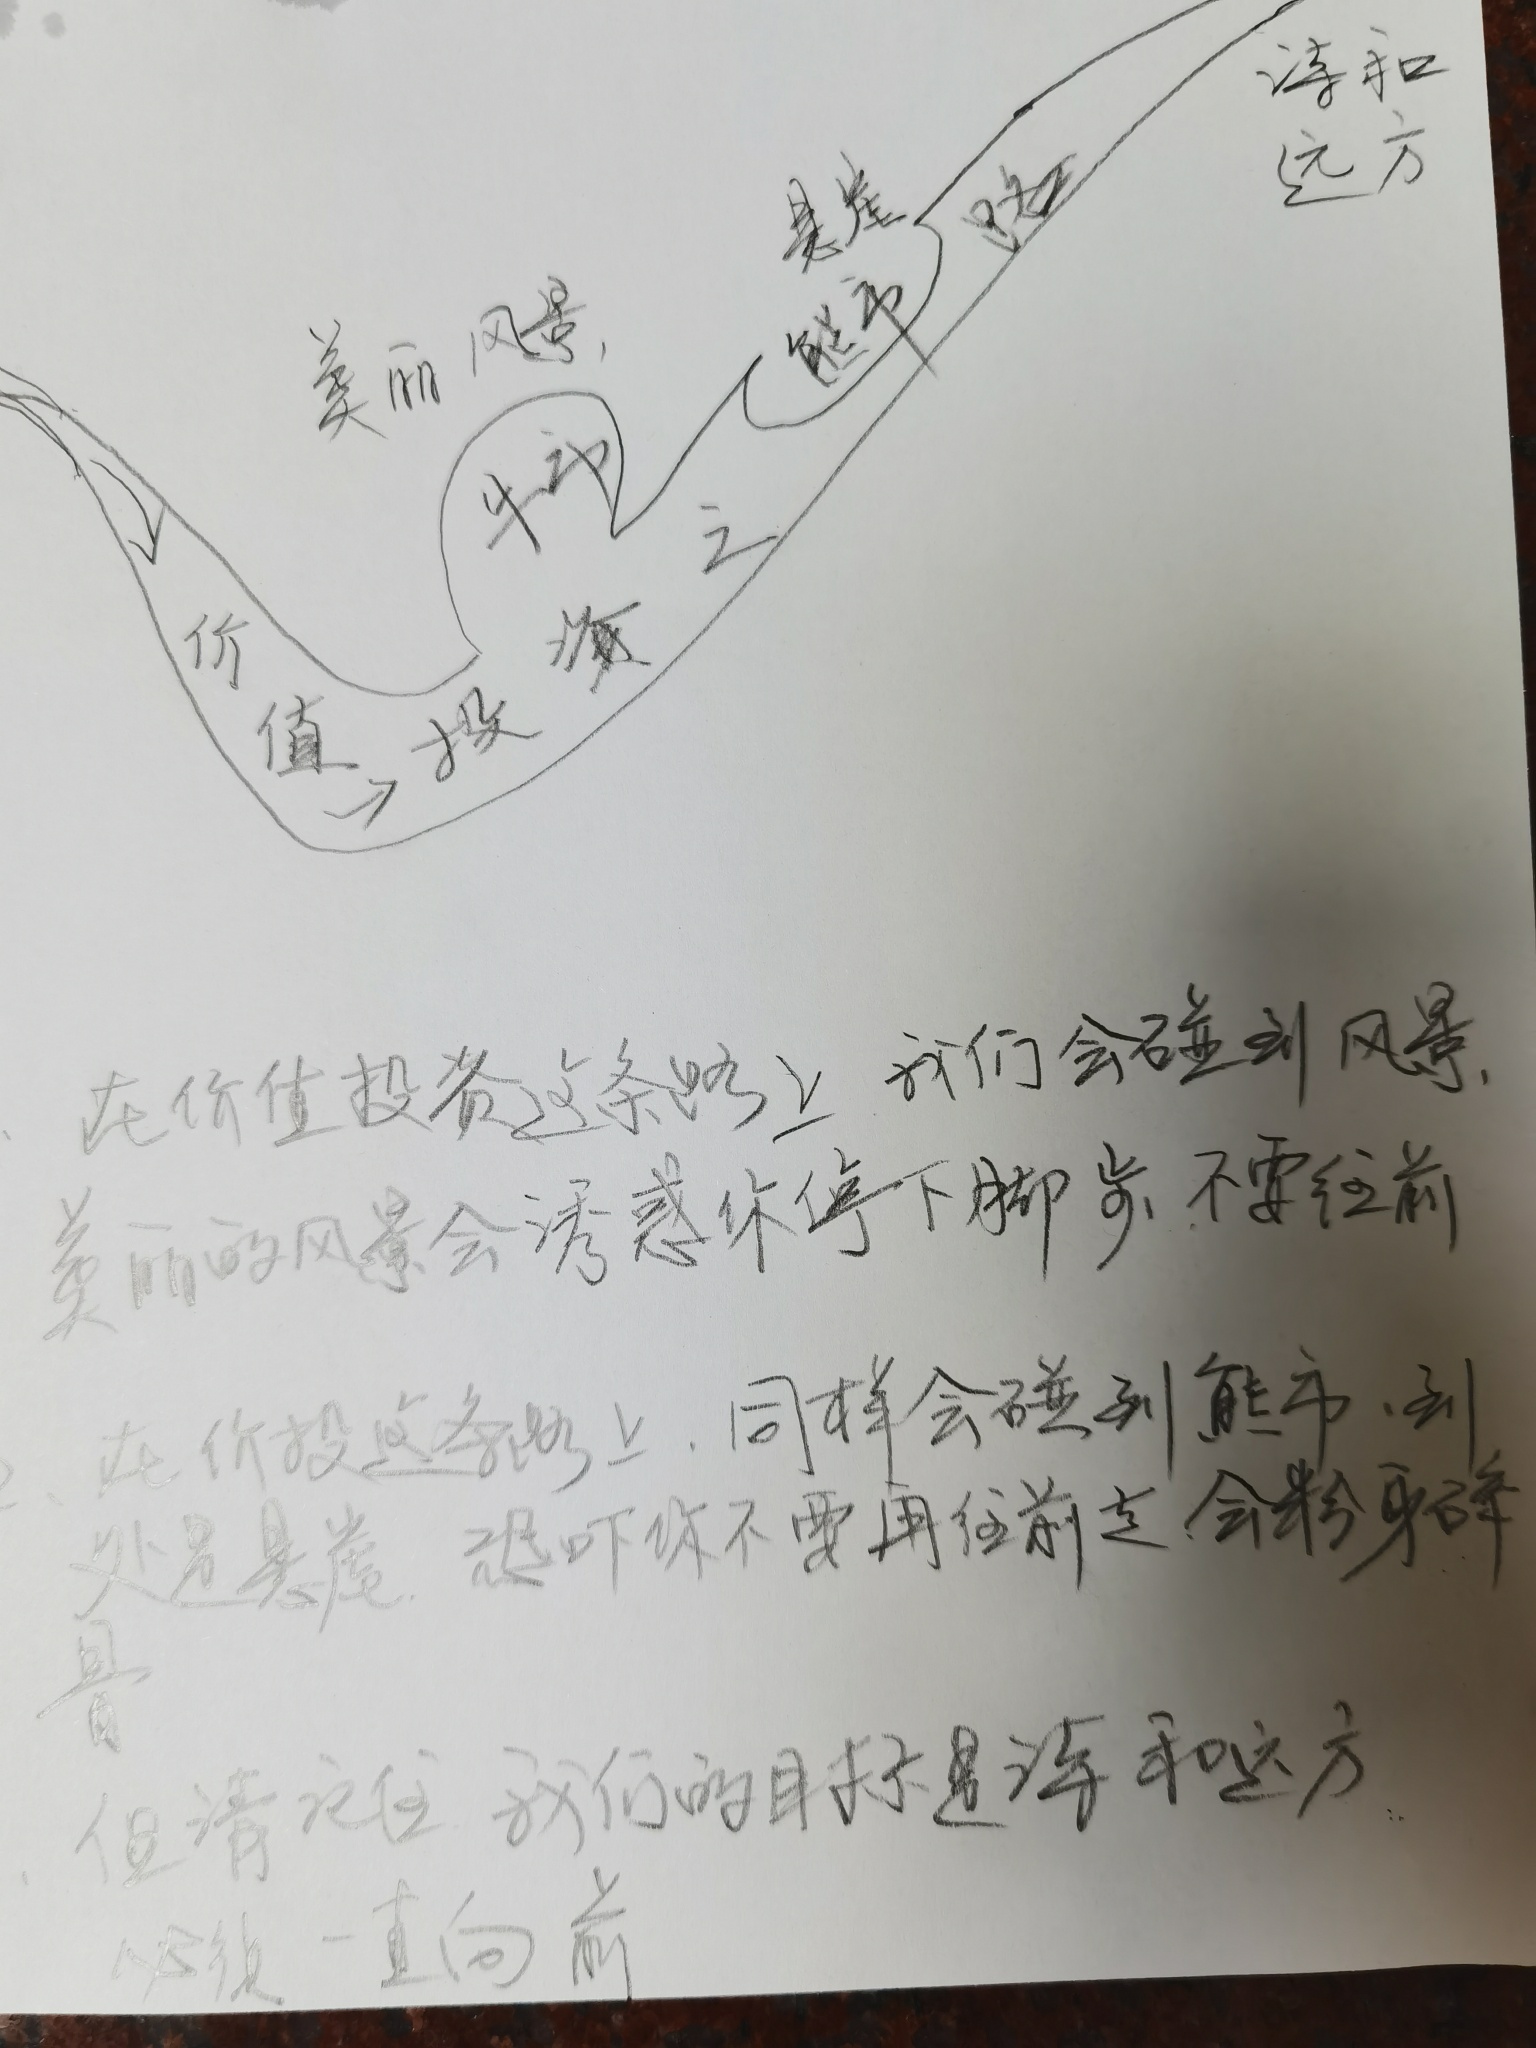 诗和
远方
悬崖
路
熊市
美丽风景,
牛市
之
价
资
值
投
在价值投资这条路上 我们会碰到风景,
美丽的风景会诱惑你停下脚步.不要往前
2、在价投这条路上.同样会碰到熊市.到
处是悬崖.恐吓你不要再往前走.会粉身碎
骨
但请记住 我们的目标是诗和远方
必须一直向前